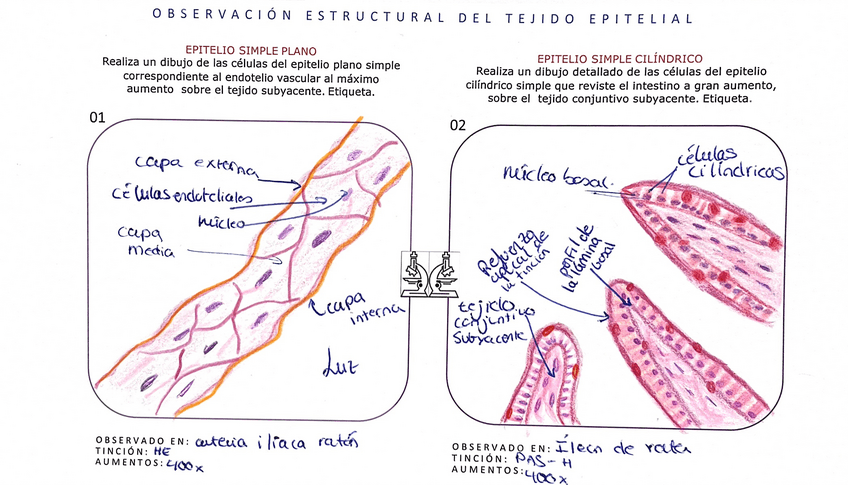 OBSERVACIÓN ESTRUCTURAL DEL TEJIDO EPITELIAL
EPITELIO SIMPLE PLANO
Realiza un dibujo de las células del epitelio plano simple
correspondiente al endotelio vascular al máximo
aumento sobre el tejido subyacente. Etiqueta.
01
capa externa
células endoteliales
núcleo
capa
media
capa
interna
Luz
OBSERVADO EN: arteria iliaca ratón
TINCIÓN: HE
AUMENTOS: 400x
EPITELIO SIMPLE CILÍNDRICO
Realiza un dibujo detallado de las células del epitelio
cilíndrico simple que reviste el intestino a gran aumento,
sobre el tejido conjuntivo subyacente. Etiqueta.
02
núcleo basal.
células
cilíndricas
Refuerzo
apical de
la tinción
perfil de
la lámina
basal
tejido
conjuntivo
subyacente
OBSERVADO EN: Íleon de rata
TINCIÓN: PAS-H
AUMENTOS: 400x